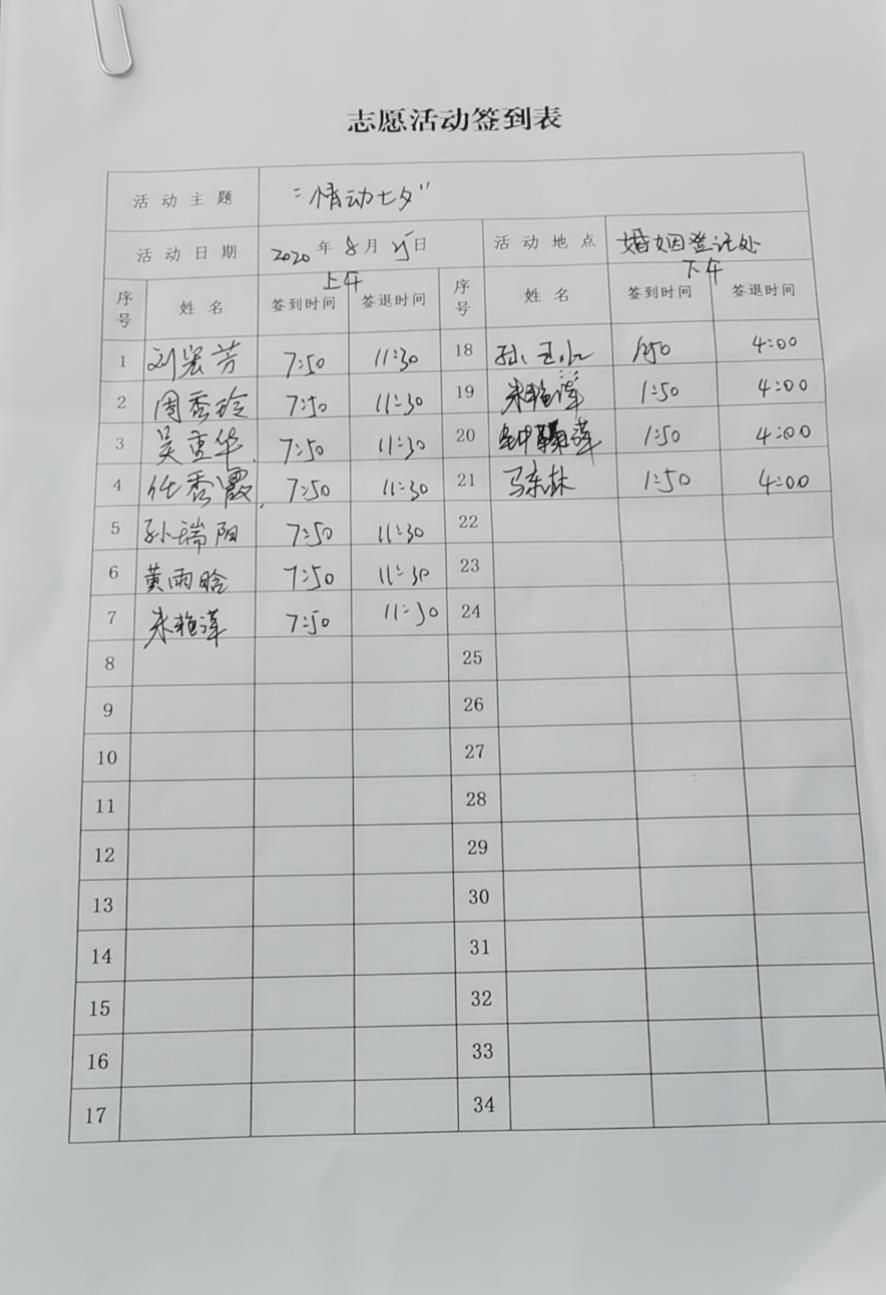 志愿活动签到表
活动主题 "情动七夕"
活动日期 2020年8月25日 活动地点 婚姻登记处
上午 下午
序号 姓名 签到时间 签退时间 序号 姓名 签到时间 签退时间
1 刘宏芳 7:50 11:30 18 孙 1:50 4:00
2 周秀玲 7:50 11:30 19 朱艳萍 1:50 4:00
3 吴重华 7:50 11:30 20 1:50 4:00
4 任秀霞 7:50 11:30 21 马东林 1:50 4:00
5 孙瑞阳 7:50 11:30 22
6 黄雨晗 7:50 11:30 23
7 朱艳萍 7:50 11:30 24
8 25
9 26
10 27
11 28
12 29
13 30
14 31
15 32
16 33
17 34